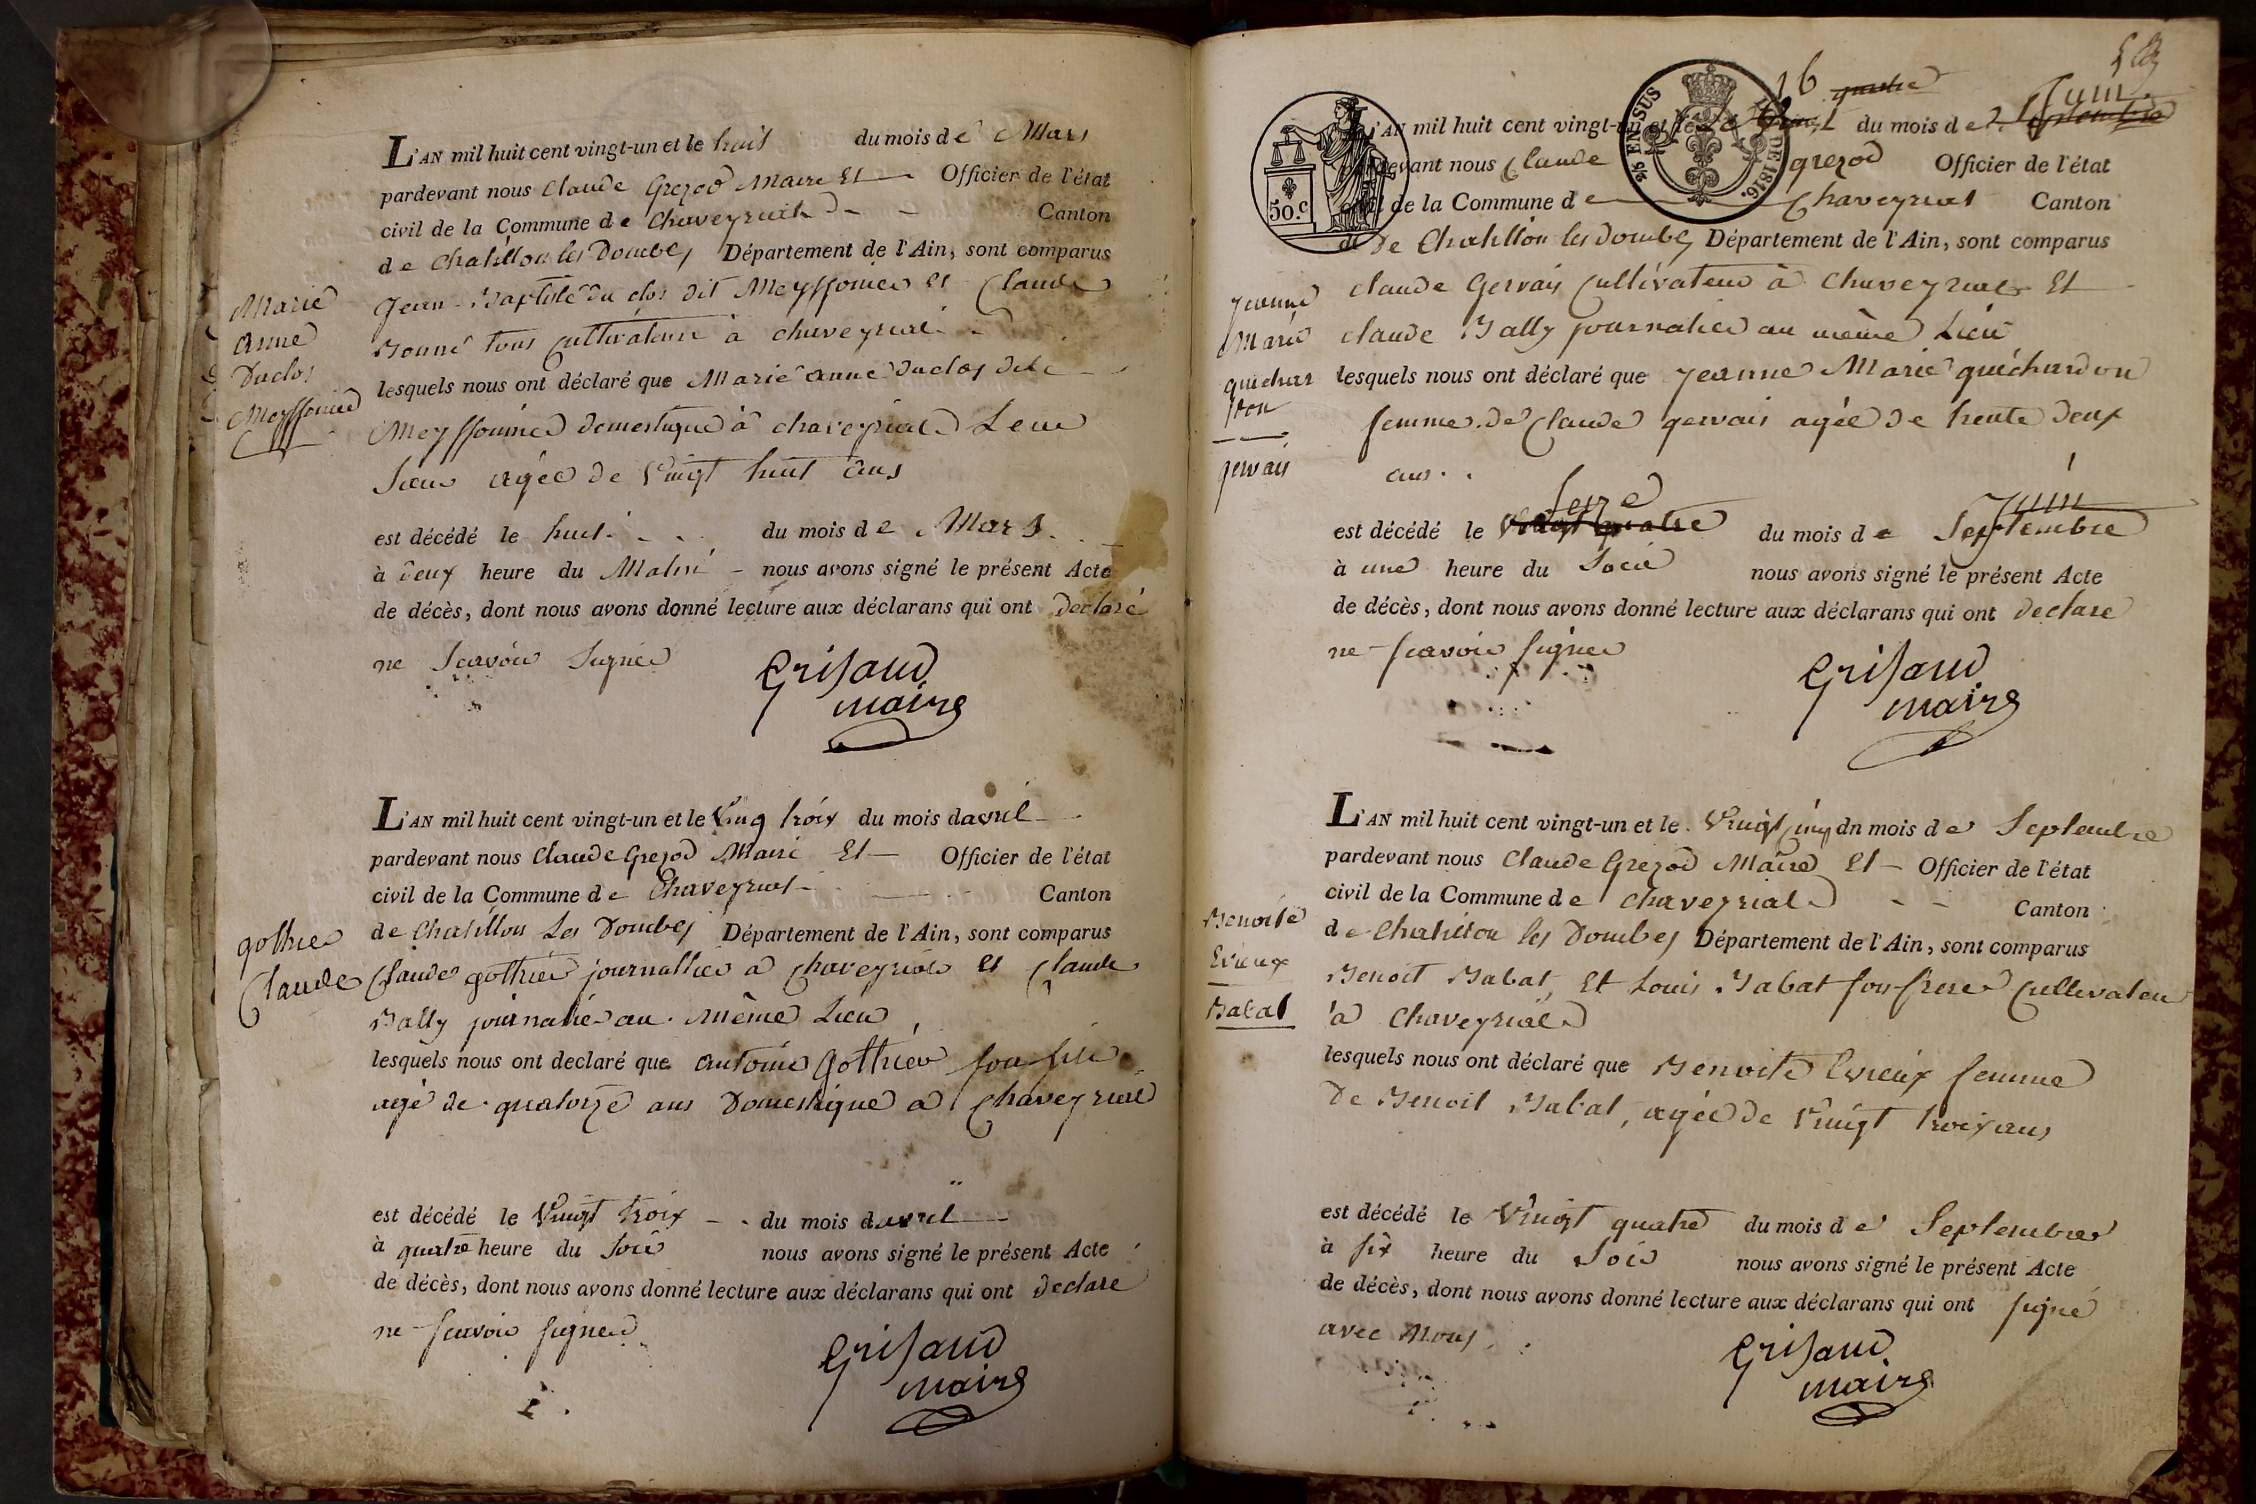 L'AN mil huit cent vingt-un et le huit du mois de Mars
pardevant nous Claude Grezod Maire Et Officier de l'état
civil de la Commune de Chaveyriat Canton
de Chatillon les Dombes Département de l'Ain, sont comparus
Jean Baptiste du clos dit Meyssonier et Claude
tous cultivateurs à chaveyriat
lesquels nous ont déclaré que Marie anne Duclos dite
Meyssonier domestique à chaveyriat Leur
Sœur agée de Vingt huit ans
est décédé le huit du mois de Mars
à deux heure du Matin nous avons signé le présent Acte
de décès, dont nous avons donné lecture aux déclarans qui ont declaré
ne Scavoir Signer
Grisaud
maire
Marie
anne
Duclos
Meyssonier
L'AN mil huit cent vingt-un et le Ving troix du mois davril
pardevant nous Claude Grezod Maire Et Officier de l'état
civil de la Commune de Chaveyriat Canton
de Chatillon Les Dombes Département de l'Ain, sont comparus
Claude gothier journallier a chaveyriat et Claude
Bally journalie au même Lieu
lesquels nous ont declaré que antoine Gothier son fils
agé de quatorze ans Domestique a Chaveyriat
est décédé le Vingt troix du mois davril
à quatre heure du Soir nous avons signé le présent Acte
de décès, dont nous avons donné lecture aux déclarans qui ont declare
ne scavoir signer
Grisaud
maire
gothier
Claude
50.c
EN SUS
DE 1816.
16 quatre Juin
L'AN mil huit cent vingt-un et le du mois de septembre
pardevant nous Claude grezod Officier de l'état
civil de la Commune de Chaveyriat Canton
de De Chatillon les Dombes Département de l'Ain, sont comparus
claude Gervais Cultivateur à Chaveyriat Et
claude Bally journalier au même Lieu
lesquels nous ont déclaré que Jeanne Marie guichardon
femme de Claude gervais agée de trente deux
ans
Seize Juin
est décédé le Vingt quatre du mois de Septembre
à une heure du Soir nous avons signé le présent Acte
de décès, dont nous avons donné lecture aux déclarans qui ont declare
ne scavoir signer
Grisaud
maire
Jeanne
Marie
guichar
don
gervais
L'AN mil huit cent vingt-un et le Vingt Cinq dn mois de Septembre
pardevant nous Claude Grezod Maire Et Officier de l'état
civil de la Commune de chaveyriat Canton
de Chatillon les Dombes Département de l'Ain, sont comparus
Benoit Babat, Et Louis Babat son frere Cultivateur
à Chaveyriat
lesquels nous ont déclaré que Benoite Evrieux femme
De Benoit Babat, agée de Vingt troix ans
est décédé le Vingt quatre du mois de Septembre
à six heure du Soir nous avons signé le présent Acte
de décès, dont nous avons donné lecture aux déclarans qui ont signé
avec Nous
Grisaud
maire
Benoite
Evrieux
Babat